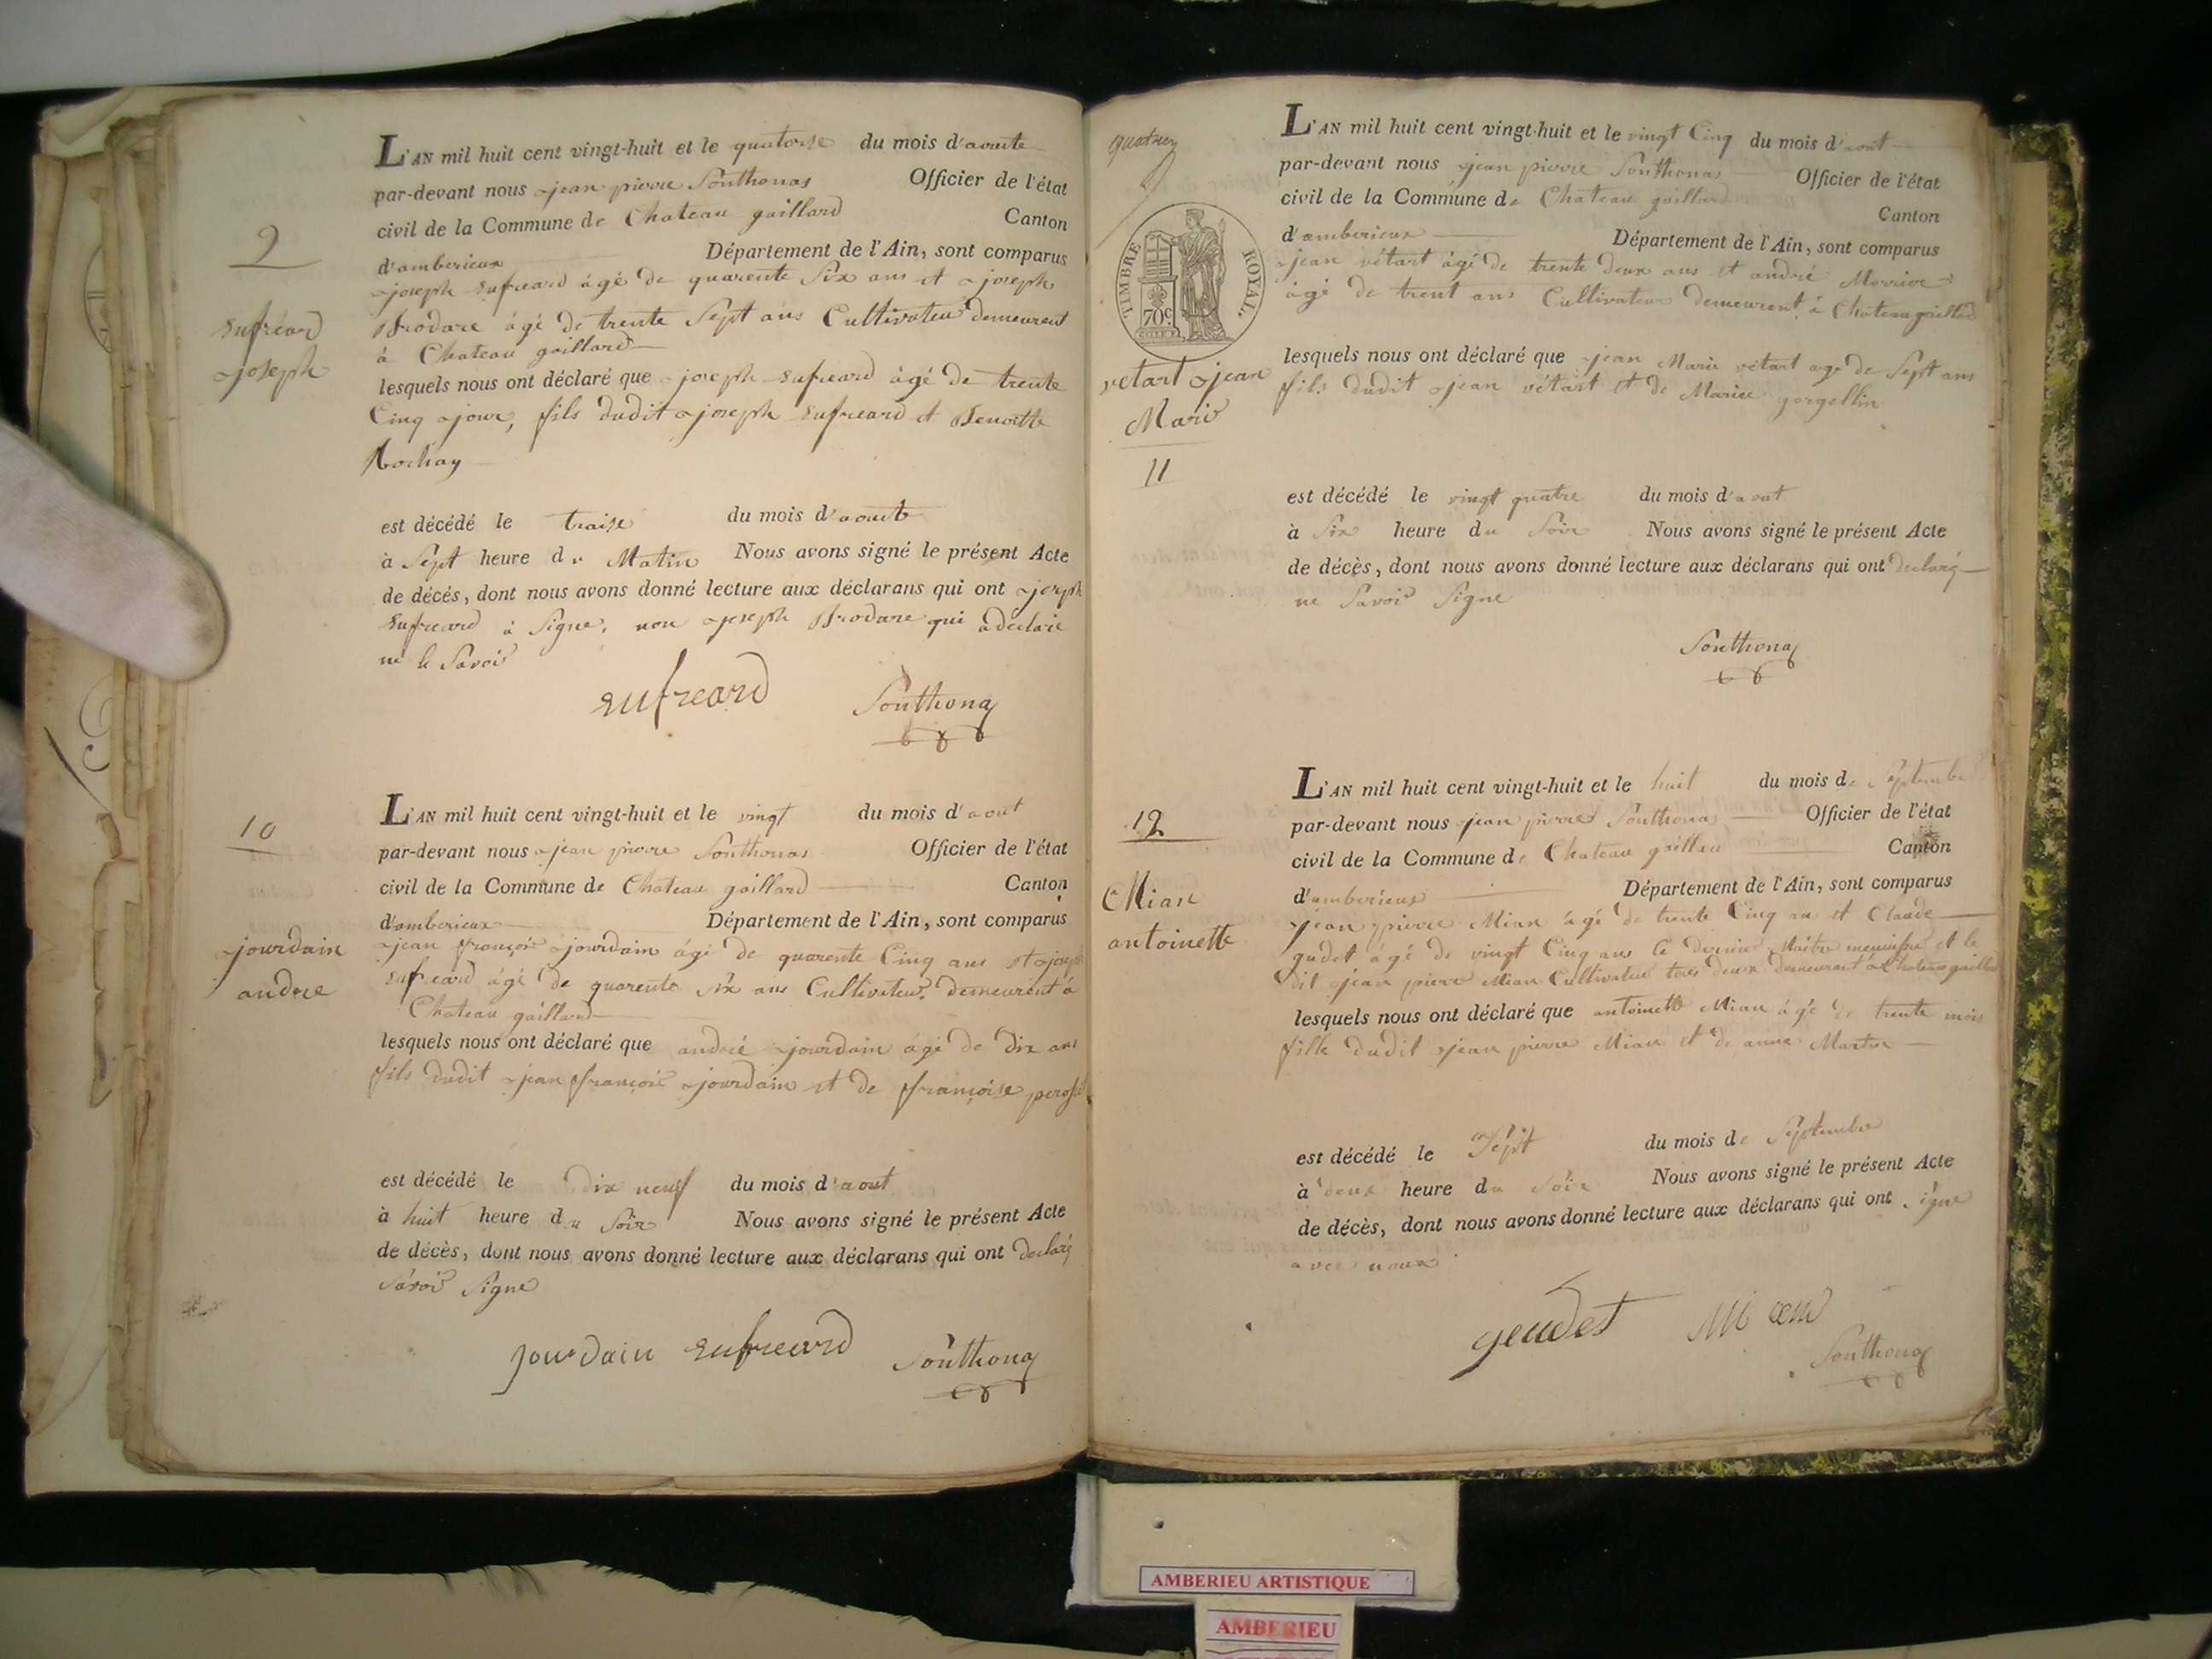 9
sufréard
joseph
L'AN mil huit cent vingt-huit et le quatorse du mois d'aouste
par-devant nous jean pierre Southonas Officier de l'état
civil de la Commune de Chateau gaillard Canton
d'amberieux Département de l'Ain, sont comparus
joseph sufreard âgé de quarente Six ans et joseph
Brodare âgé de trente Sept ans Cultivateur demeurent
à Chateau gaillard
lesquels nous ont déclaré que joseph sufreard âgé de trente
Cinq jour, fils dudit joseph sufreard et Benoitte
est décédé le traise du mois d'aouste
à Sept heure du Matin Nous avons signé le présent Acte
de décés, dont nous avons donné lecture aux déclarans qui ont joseph
sufreard à Signe, non joseph Brodare qui a declaré
ne le Savoir
sufreard Southonas
10
jourdain
andre
L'AN mil huit cent vingt-huit et le vingt du mois d'aout
par-devant nous jean pierre Southonas Officier de l'état
civil de la Commune de Chateau gaillard Canton
d'amberieux Département de l'Ain, sont comparus
jean françois jourdain âgé de quarente Cinq ans et joseph
sufreard âgé de quarente six ans Cultivateur demeurent à
Chateau gaillard
lesquels nous ont déclaré que andré jourdain âgé de dix ans
fils dudit jean françois jourdain et de françoise
est décédé le dix neuf du mois d'aout
à huit heure du Soir Nous avons signé le présent Acte
de décès, dont nous avons donné lecture aux déclarans qui ont declaré
Savoir Signe
Jourdain sufreard Southonas
TIMBRE ROYAL.
70c
vetart jean
Marie
11
L'AN mil huit cent vingt-huit et le vingt Cinq du mois d'aout
par-devant nous jean pierre Southonas Officier de l'état
civil de la Commune de Chateau gaillard Canton
d'amberieux Département de l'Ain, sont comparus
jean vétart âgé de trente deux ans et andré
âgé de trent ans Cultivateur demeurent à Chateaugaillard
lesquels nous ont déclaré que jean Marie vétart age de Sept ans
fils dudit jean vétart et de Marie
est décédé le vingt quatre du mois d'aout
à Six heure du Soir Nous avons signé le présent Acte
de décès, dont nous avons donné lecture aux déclarans qui ont declaré
ne Savoir Signe
Southonas
12
Mian
antoinette
L'AN mil huit cent vingt-huit et le huit du mois de Septembre
par-devant nous jean pierre Southonas Officier de l'état
civil de la Commune de Chateau gaillard Canton
d'amberieux Département de l'Ain, sont comparus
jean pierre Mian âgé de trente Cinq ans et Claude
gudet âgé de vingt Cinq ans le dernier Maître et le
dit jean pierre Mian Cultivateur tous deux demeurant à Chateau gaillard
lesquels nous ont déclaré que antoinette Mian âgé de trente mois
fille dudit jean pierre Mian et de anne Martin
est décédé le Sept du mois de Septembre
à deux heure du Soir Nous avons signé le présent Acte
de décès, dont nous avons donné lecture aux déclarans qui ont signe
avec nous
geudet Mian
Southonas
AMBERIEU ARTISTIQUE
AMBERIEU